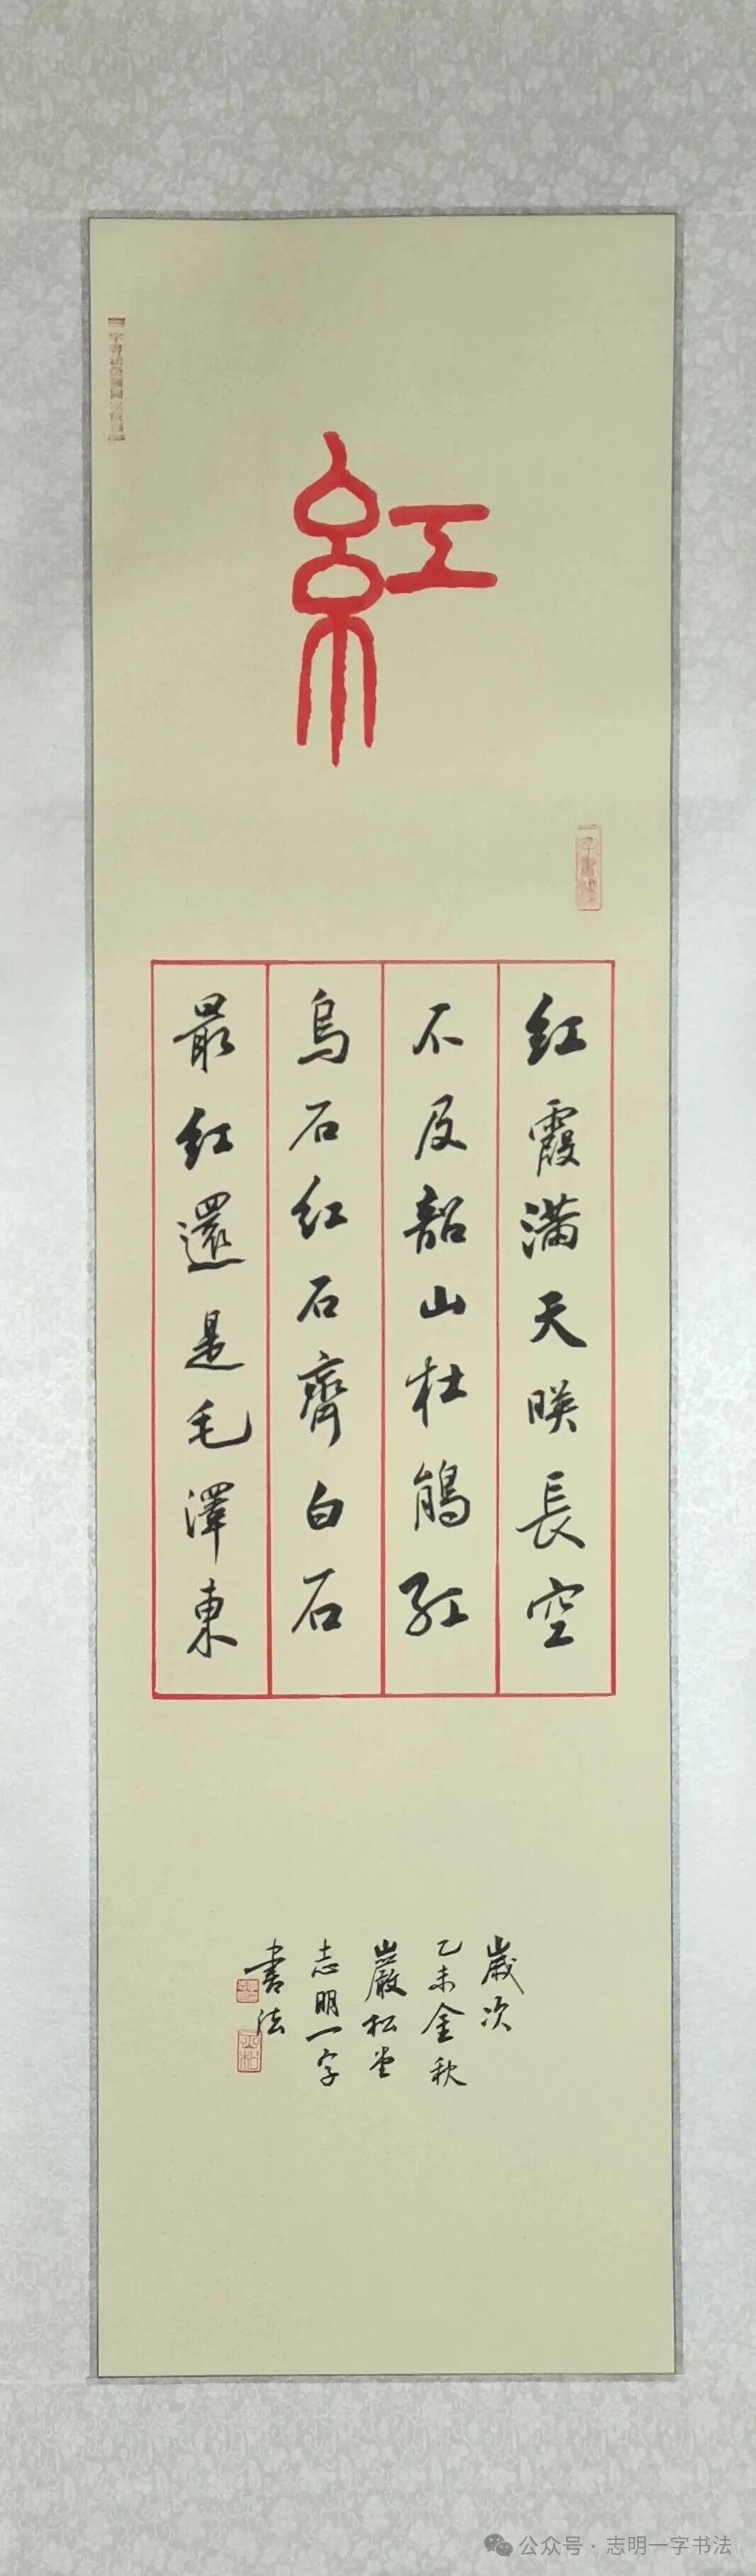 紅
红霞满天暎長空
不及韶山杜鵑红
烏石红石齊白石
最红還是毛澤東
歲次
乙未金秋
巖松堂
志明一字
書法
一字書法
公众号·志明一字书法